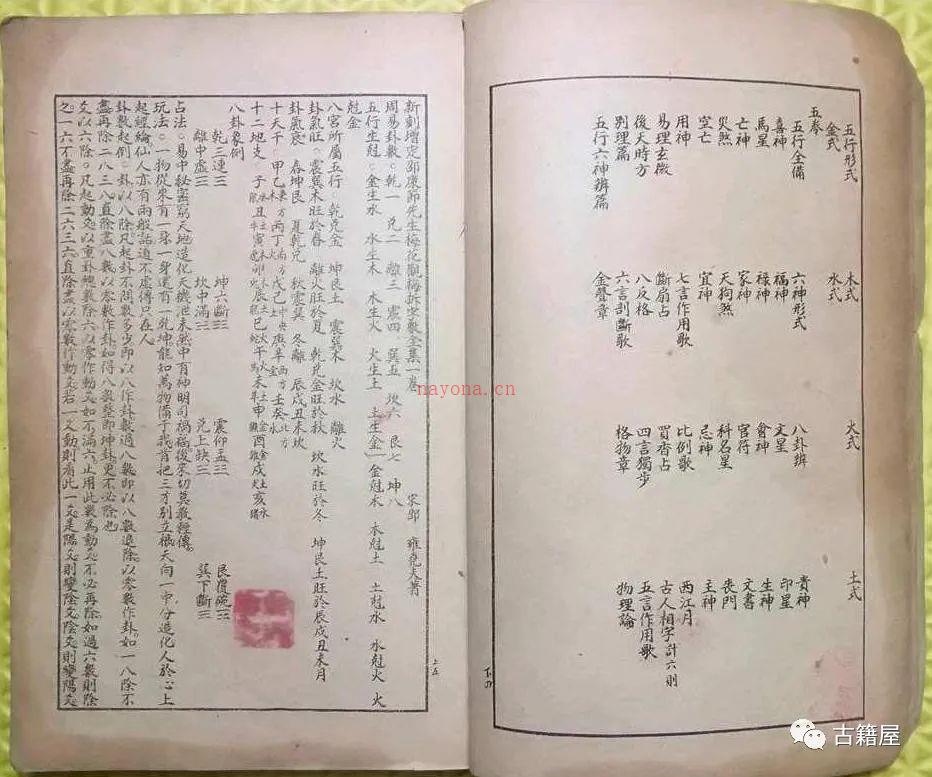 五行形式 木式 火式 土式
金式 水式
五卷
五行全備 六神形式 八卦辨 貴神
喜神 福神 文星 印星
馬星 祿神 會神 生神
亡神 家神 官符 文書
災煞 天狗煞 科名星 喪門
空亡 宜神 忌神 主神
用神 七言作用歌 比例歌 西江月
易理玄微 斷扇占 買香占 古人相字計六則
後天時方 八反格 四言獨步 五言作用歌
別理篇 六言剖斷歌 格物章 物理論
五行六神辨篇 金聲章
下九
新刻增定邵康節先生梅花觀梅拆字數全集一卷 宋邵 雍堯夫著
周易卦數。乾一 兌二 離三 震四 巽五 坎六 艮七 坤八
五行生尅。金生水 水生木 木生火 火生土 土生金 金尅木 木尅土 土尅水 水尅火 火
尅金
八宮所屬五行 乾兌金 坤艮土 震巽木 坎水 離火
卦氣旺。震巽木旺於春 離火旺於夏 乾兌金旺於秋 坎水旺於冬 坤艮土旺於辰戌丑未月
卦氣衰 春坤艮 夏乾兌 秋震巽 冬離 辰戌丑未坎
十天干 甲乙東方木 丙丁南方火 戊己中央土 庚辛西方金 壬癸北方水
十二地支 子水鼠 丑土牛 寅木虎 卯木兔 辰土龍 巳火蛇 午火馬 未土羊 申金猴 酉金雞 戌土犬 亥水豬
八卦象例
乾三連☰ 坤六斷☷ 震仰盂☳ 艮覆碗☶
離中虛☲ 坎中滿☵ 兌上缺☱ 巽下斷☴
占法。易中秘密窮天地造化天機泄未然中有神明司禍福後來切莫教輕傳。
玩法。一物從來有一身一身還有一乾坤能知萬物備于我肯把三才別立根天向一中分造化人於心上
起經綸仙人亦有兩般話道不虛傳只在人
卦數起例。卦以八除凡起卦不問數多少即以八作卦數過八數即以八數退除以零數作卦如一八除不
盡再除二八三八直除盡八數以零數作卦如得八數整即坤卦更不必除也
爻以六除。凡起動爻以重卦總數除六以零作動爻如不滿六止用此數為動爻不必再除如過六數則除
之一六不盡再除二六三六直除盡以零數作動爻若一爻動則看此一爻是陽爻則變陰爻陰爻則變陽爻
上五
nayona.cn
古籍屋